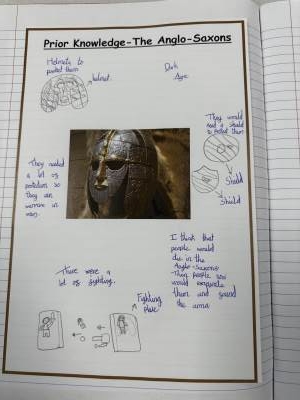 Prior Knowledge-The Anglo-Saxons
Helmets to
protect them
helmet.
Dark
Age
They would
need a shield
to protect them
Shield
Shield
They needed
a lot of
protection so
they are
warriors in
wars.
I think that
people would
die in the
Anglo-Saxons
then people
would
them and
the
There were a
lot of fighting.
Fighting
place